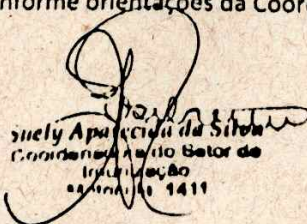 nforme orientações da Coord
Suely Aparecida da Silva
Coordenadora do Setor de
1411